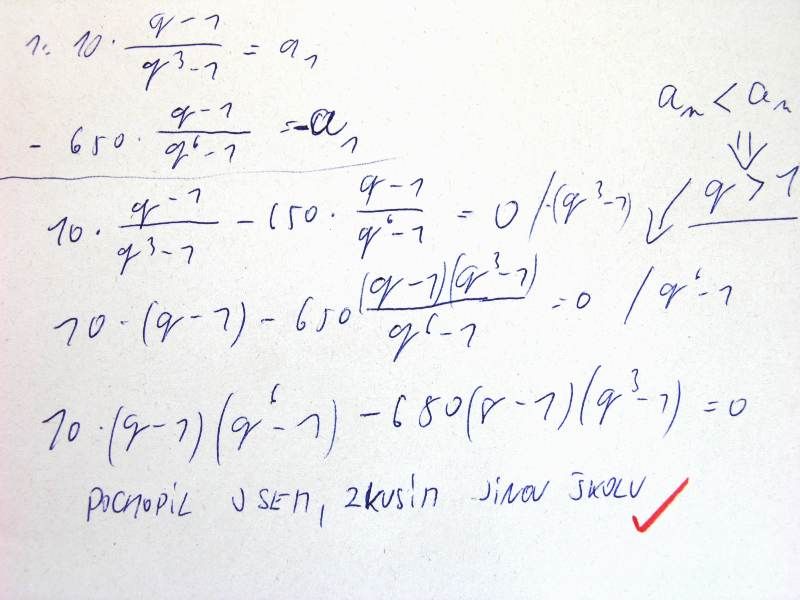 1. 10 · (q-1)/(q³-1) = a₁
- 650 · (q-1)/(q⁶-1) = -a₁
aₙ < aₙ
⇓
10 · (q-1)/(q³-1) - 650 · (q-1)/(q⁶-1) = 0 / ·(q³-1) q > 1
10 · (q-1) - 650 (q-1)(q³-1)/(q⁶-1) = 0 / q⁶-1
10 · (q-1)(q⁶-1) - 650(q-1)(q³-1) = 0
POCHOPIL JSEM, ZKUSÍM JINOU ŠKOLU